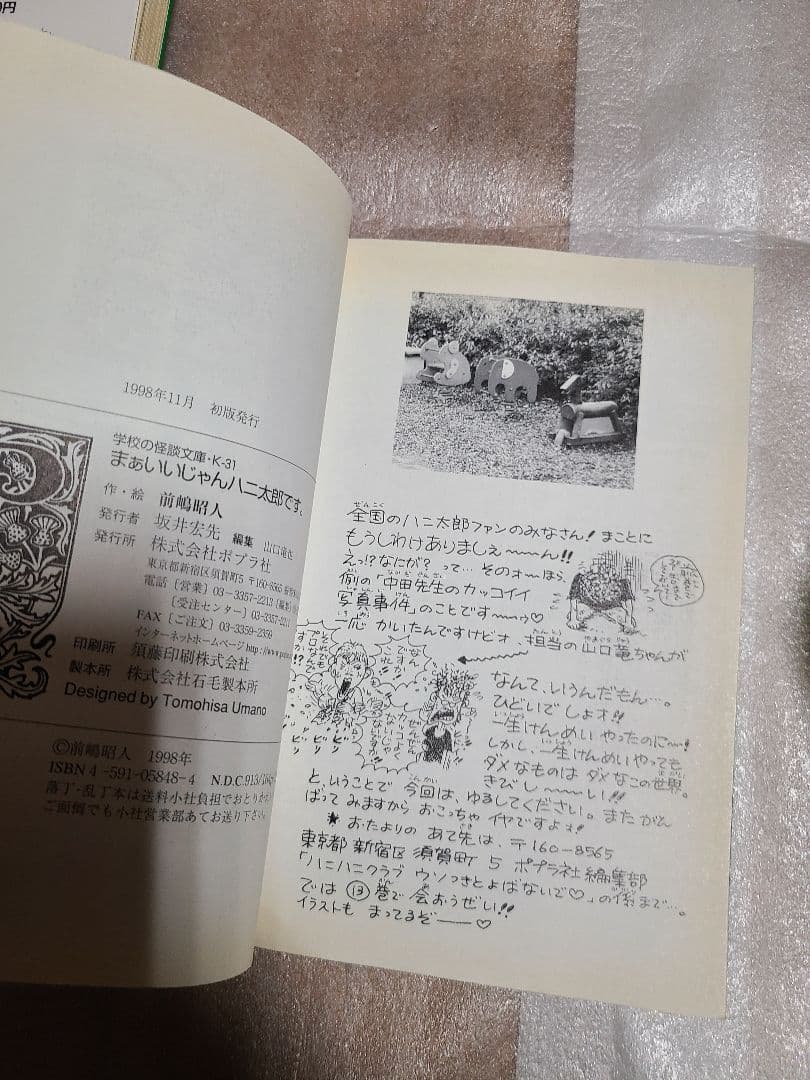 円
1998年11月 初版発行
学校の怪談文庫・K-31
まぁいいじゃんハニ太郎です。
作・絵 前嶋昭人
発行者 坂井宏先 編集 山口竜也
発行所 株式会社ポプラ社
東京都新宿区須賀町5 〒160-8565
電話〔営業〕03-3357-2213〔編集〕
〔受注センター〕03-3357-221
FAX〔ご注文〕03-3359-2359
インターネットホームページ http://www.po
印刷所 須藤印刷株式会社
製本所 株式会社石毛製本所
Designed by Tomohisa Umano
©前嶋昭人 1998年
ISBN4-591-05848-4 N.D.C.913/
落丁・乱丁本は送料小社負担でおとりかえ
ご面倒でも小社営業部あてお送り下さい
全国のハニ太郎ファンのみなさん! まことに
もうしわけありましぇ〜〜ん!!
えっ!?なにが? って… そのォーほら、
例の「中田先生のカッコイイ
写真事件」のことです〜ゥ♡
一応 かいたんですけどォ、担当の山口竜ちゃんが
なんて、いうんだもん…。
ひどいでしょォ!!
一生けんめい やったのに〜!
しかし、一生けんめいやっても
ダメなものは ダメなこの世界。
きびし〜〜い!!
と、いうことで 今回は、ゆるしてください。また がん
ばって みますから おこっちゃ イヤですよォ!
★おたよりの あて先は、〒160-8565
東京都 新宿区 須賀町 5 ポプラ社 編集部
「ハニハニクラブ ウソつきとよばないで♡」の係まで…。
では ⑬巻で 会おうぜい!!
イラストも まってるぞ――♡